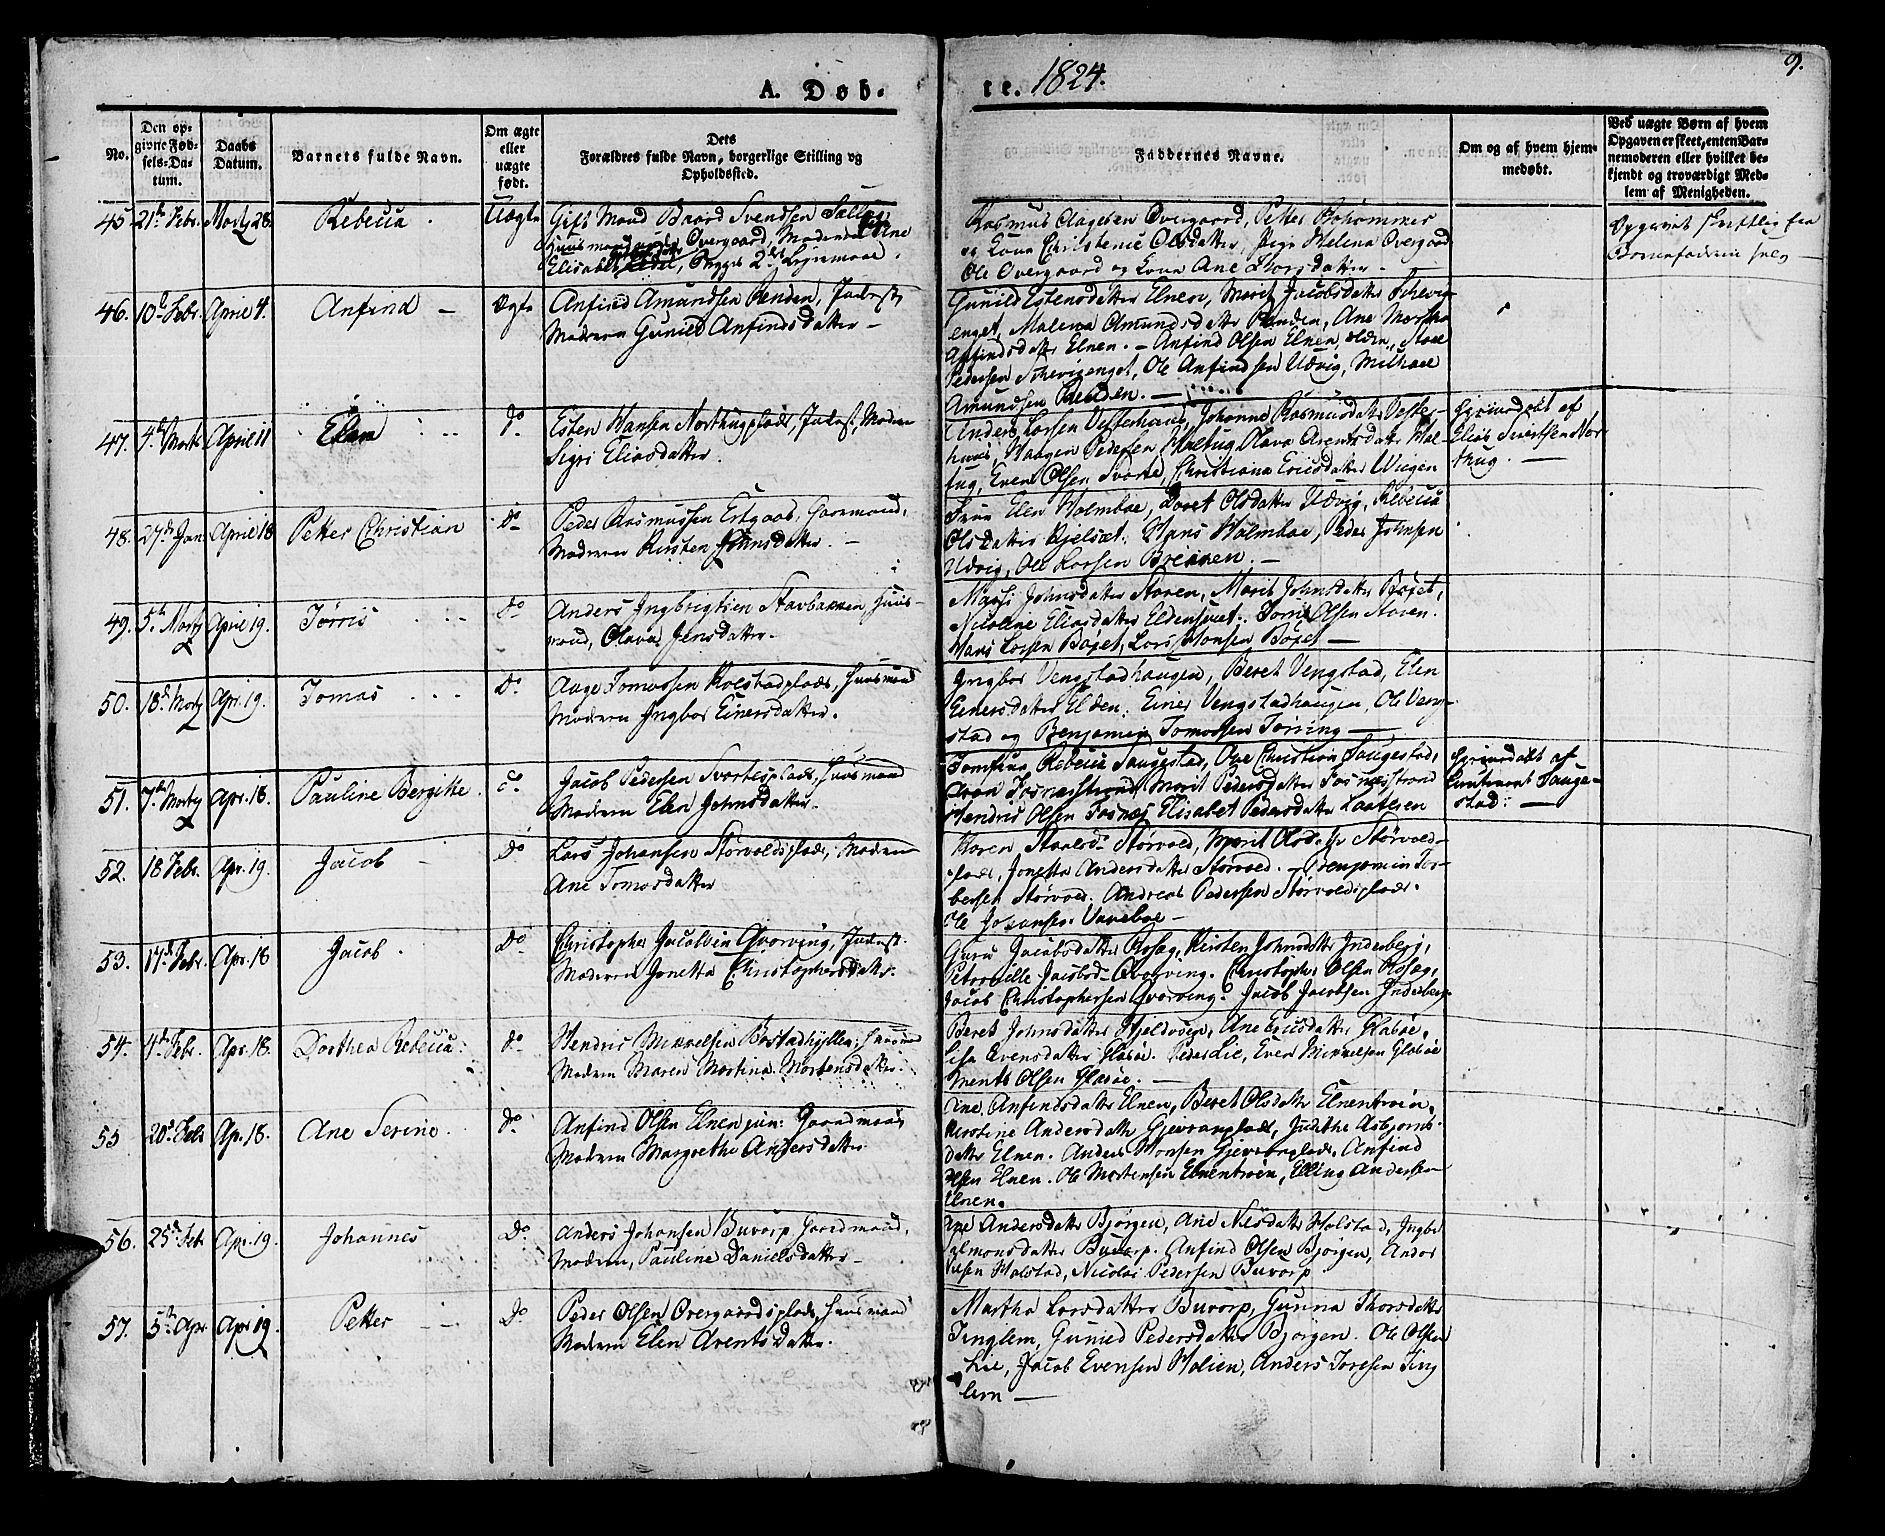 A. Døb-
te. 1824.
9.
No.
Den op-
givne Fød-
sels-Da-
tum.
Daabs
Datum.
Barnets fulde Navn.
Om ægte
eller
uægte
født.
Dets
Forældres fulde Navn, borgerlige Stilling og
Opholdssted.
Faddernes Navne.
Om og af hvem hjem-
medøbt.
Ved uægte Børn af hvem
Opgaven er skeet, enten Bar-
nemoderen eller hvilket be-
kjendt og troværdigt Med-
lem af Menigheden.
45 21de Febr. Martz 28. Rebecca Uægte
Gift Mand Baard Svendsen
Overgaard, Moderen Ane
Elisabet 2det Leiermaal.
Rasmus Aagesen Overgaard, Petter
og Kona Christense Olsdatter, Pige Helena Overgaard
Ole Overgaard og Kona Ane Thorsdatter
Opgivet skriftlig fra
Barnefaderen selv
46. 10de Febr. April 4. Anfind Ægte
Anfind Amundsen Renden, Inderst,
Moderen Gunild Anfindsdatter
Gunild Estensdatter Elnen, Marit Jacobsdatter
enget, Malena Amundsdatter Renden, Ane Martha
Anfindsdatter Elnen. Anfind Olsen Elnen,
Pedersen, Ole Anfindsen Udvig, Michael
Amundsen Renden.
47. 4de Marts April 11 Elen Do
Esten Hansen Norhugplads, Inderst, Moderen
Sigri Eliasdatter
Anders Larsen Vesterhuus, Johanna Rasmusdatter Vester-
huus, Haagen Pedersen Halhug, Olava Arentsdatter Hal-
hug, Even Olsen Svarte, Christiana Ericsdatter Wiigen
Hjemmedøbt af
Elias Sivertsen Nor
thug.
48. 27de Jan. April 18 Petter Christian Do
Peder Rasmussen Estgaard, Gaardmand,
Moderen Kirsten Hansdatter.
Frue Elen Holmboe, Beret Olsdatter Udvig, Rebecca
Olsdatter Hjelset. Hans Holmboe, Peder Johnsen
Udvig, Ole Larsen Brennen.
49. 5te Martz April 19. Tørris Do
Anders Ingbrigtsen Stavbakken, Huus-
mand, Olava Jensdatter.
Massi Johnsdatter Staren, Marit Johnsdatter Bøjet,
Nicoline Eliasdatter. Tørris Olsen Staren.
Hans Larsen Bøjet, Lars Hansen Bøjet
50. 18de Martz Apr. 19. Tomas Do
Aage Tomassen Holstadplads, Huusmand
Moderen Ingbor Einersdatter.
Ingbor Vengstadhaugen, Beret Vengstad, Elen
Einersdatter Elden. Einer Vengstadhaugen, Ole Veng-
stad og Benjamin Tomassen Tørring
51. 7de Martz Apr. 18. Pauline Bergitte Do
Jacob Pedersen Svarteplads, Huusmand
Moderen Elen Johnsdatter.
Jomfrue Rebecca Saugestad, Ove Christian Saugestad,
Aron Fosnæsstrand, Marit Pedersdatter Fosnæsstrand
Hendric Olsen Fosnæs, Elisabet Pedersdatter
Hjemmedøbt af
Lieutnant Sauge-
stad.
52. 18 Febr. Apr. 19. Jacob Do
Lars Johansen Størvoldsplads, Moderen
Ane Tomasdatter
Maren Størvold, Marit Størvold-
plads, Jonetta Andersdatter Størvold. Benjamin Tor-
bersen Størvold. Andreas Pedersen Størvoldsplads.
Ole Johansen
53. 17de Febr. Apr. 18 Jacob Do
Christopher Jacobsen Qvarving, Inderst.
Moderen Jonetta Christophersdatter.
Guru Jacobsdatter Rosæg, Kirsten Johnsdatter Inderberg,
Petronille Jacobsd. Qvarving. Christopher Olsen Rosæg,
Jacob Christophersen Qvarving. Jacob Jacobsen Inderberg
54. 4de Febr. Apr. 18. Dorthea Rebecca Do
Hendric Mikkelsen Bostadhyllen, Huusmand
Moderen Maren Martina Mortensdatter.
Beret Johnsdatter Hjeldvoen, Ane Ericsdatter Gladsøe.
Lisa Evensdatter Gladsøe. Peder Lie, Even Mikkelsen Gladsøe
Ments Olsen Gladsøe.
55 20de Febr Ap. 18. Ane Serine Do
Anfind Olsen Elnen jun: Gaardmand
Moderen Margrethe Andersdatter
Tine Anfindsdatter Elnen, Beret Olsdatter Elnentrøen,
Kirstine Andersdatter, Judithe Asbjørns-
datter Elnen. Anders Hansen, Anfind
Olsen Elnen. Ole Mortensen Elnentrøen, Elling Andersen
Elnen.
56. 25de Feb Apr. 19. Johannes Do
Anders Johansen Buvarp, Gaardmand,
Moderen, Pauline Danielsdatter
Ane Andersdatter Bjørgen, Ane Nilsdatter Holstad, Ingbor
Buvarp. Anfind Olsen Bjørgen, Anders
Holstad, Nicolai Pedersen Buvarp
57. 5te Apr Apr 19. Petter Do
Peder Olsen Overgaardsplads, Huusmand
Moderen Elen Arentsdatter.
Martha Larsdatter Buvarp, Gunna Thorsdatter
Tinglem, Gunild Pedersdatter Bjørgen. Ole Olsen
Lie, Jacob Evensen Holien, Anders Toresen Ting
lem